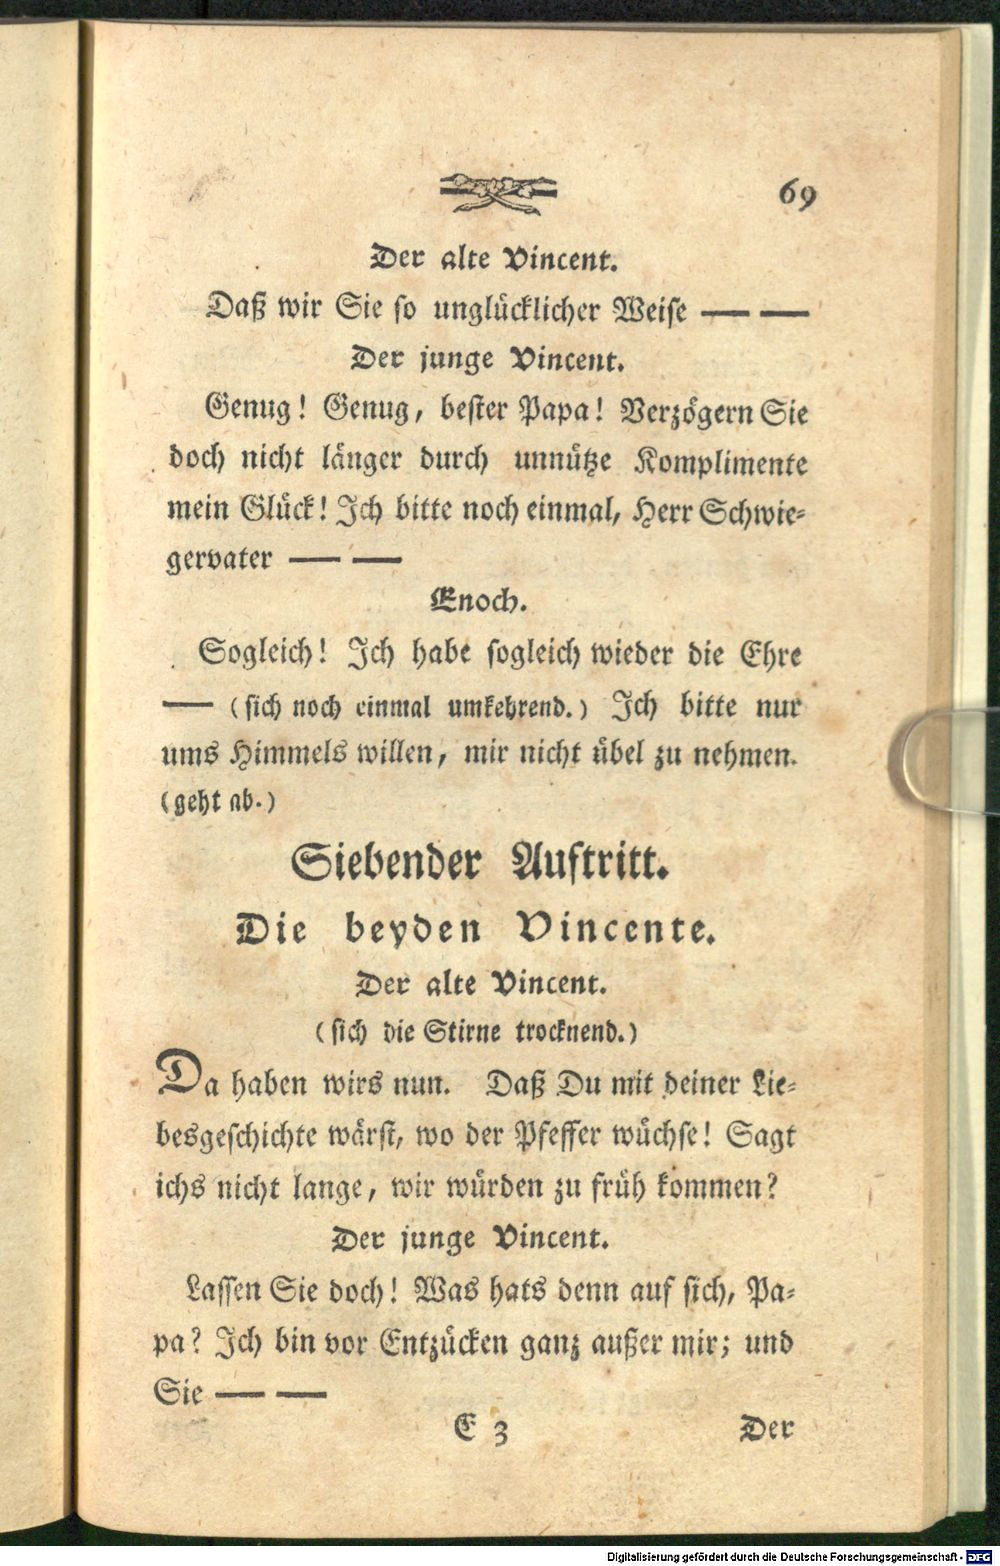 69
Der alte Vincent.
Daß wir Sie so unglücklicher Weise — —
Der junge Vincent.
Genug! Genug, bester Papa! Verzögern Sie
doch nicht länger durch unnütze Komplimente
mein Glück! Ich bitte noch einmal, Herr Schwie-
gervater — —
Enoch.
Sogleich! Ich habe sogleich wieder die Ehre
— (sich noch einmal umkehrend.) Ich bitte nur
ums Himmels willen, mir nicht übel zu nehmen.
(geht ab.)
Siebender Auftritt.
Die beyden Vincente.
Der alte Vincent.
(sich die Stirne trocknend.)
Da haben wirs nun. Daß Du mit deiner Lie-
besgeschichte wärst, wo der Pfeffer wüchse! Sagt
ichs nicht lange, wir würden zu früh kommen?
Der junge Vincent.
Lassen Sie doch! Was hats denn auf sich, Pa-
pa? Ich bin vor Entzücken ganz außer mir; und
Sie — —
E 3 Der
Digitalisierung gefördert durch die Deutsche Forschungsgemeinschaft - DFG